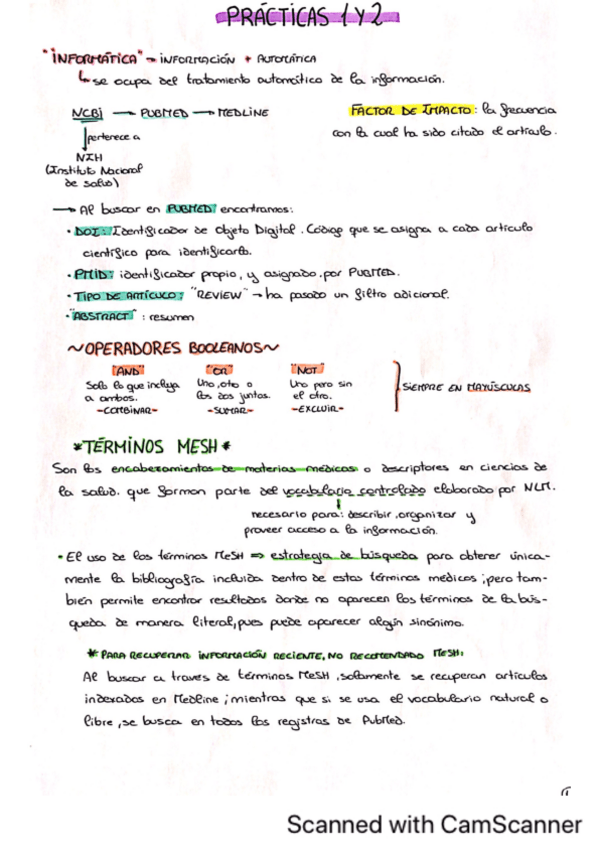 PRÁCTICAS 1 Y 2
"INFORMÁTICA" → INFORMACIÓN + AUTOMÁTICA
↳ se ocupa del tratamiento automático de la información.
NCBI → PUBMED → MEDLINE
pertenece a
NIH
(Instituto Nacional
de salud)
FACTOR DE IMPACTO: la frecuencia
con la cual ha sido citado el artículo.
→ Al buscar en PUBMED encontramos:
• DOI: Identificador de Objeto Digital. Código que se asigna a cada artículo
científico para identificarlo.
• PMID: identificador propio, y asignado por PUBMED.
• TIPO DE ARTÍCULO: "REVIEW" → ha pasado un filtro adicional.
• "ABSTRACT": resumen
~OPERADORES BOOLEANOS~
"AND"
Solo lo que incluya
a ambos.
-COMBINAR-
"OR"
Uno, otro o
los dos juntos.
-SUMAR-
"NOT"
Uno pero sin
el otro.
-EXCLUIR-
SIEMPRE EN MAYÚSCULAS
*TÉRMINOS MESH*
Son los encabezamientos de materias médicas o descriptores en ciencias de
la salud. que forman parte del vocabulario controlado elaborado por NLM.
necesario para: describir, organizar y
proveer acceso a la información.
• El uso de los términos MeSH ⇒ estrategia de búsqueda para obtener única-
mente la bibliografía incluida dentro de estos términos médicos; pero tam-
bién permite encontrar resultados donde no aparecen los términos de la bús-
queda de manera literal, pues puede aparecer algún sinónimo.
* PARA RECUPERAR INFORMACIÓN RECIENTE, NO RECOMENDADO MeSH:
Al buscar a traves de términos MeSH, solamente se recuperan artículos
indexados en Medline; mientras que si se usa el vocabulario natural o
libre, se busca en todos los registros de PubMed.
Scanned with CamScanner